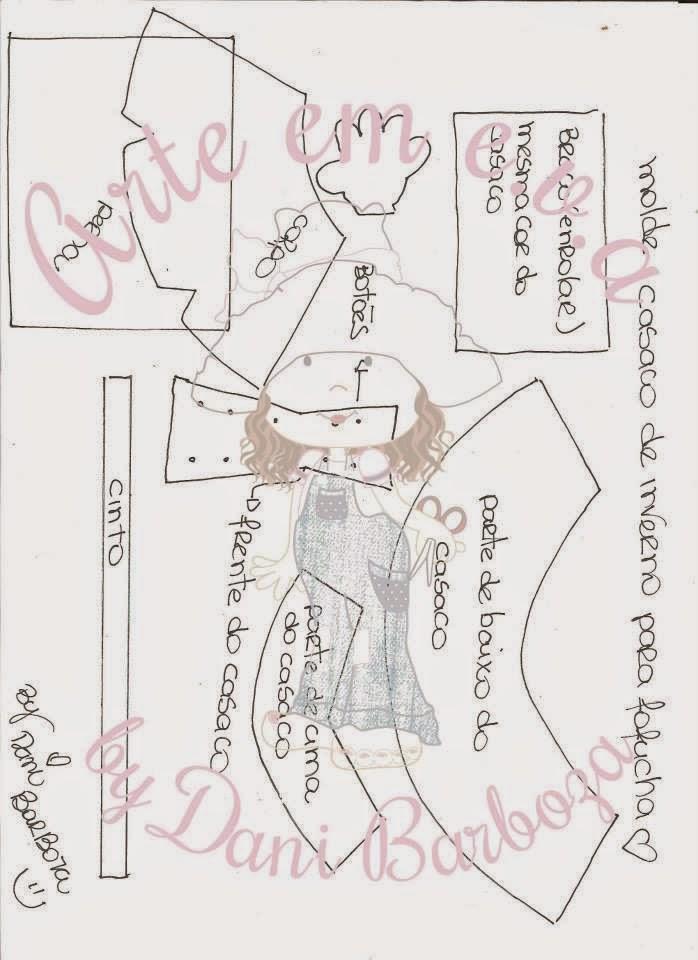 molde: casaco de inverno para fofucha
Arte em e.v.a
Braço (enrolar)
mesma cor do
casaco
capuz
Botões
parte de baixo do
casaco
frente do casaco
parte de cima
do casaco
cinto
by Dani Barboza
by Dani Barboza